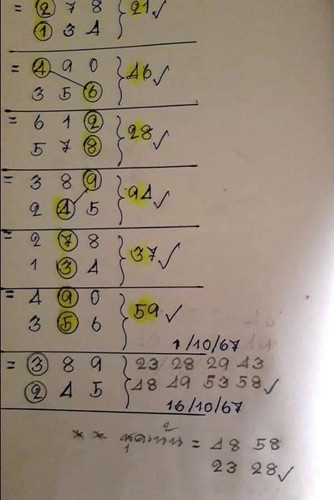 = 2 7 8
1 3 4 } 21 ✓
= 4 9 0
3 5 6 } 46 ✓
= 6 1 2
5 7 8 } 28 ✓
= 3 8 9
2 4 5 } 94 ✓
= 2 7 8
1 3 4 } 37 ✓
= 4 9 0
3 5 6 } 59 ✓
1/10/67
= 3 8 9 } 23 28 29 43
2 4 5 48 49 53 58 ✓
16/10/67
* * = 48 58
23 28 ✓